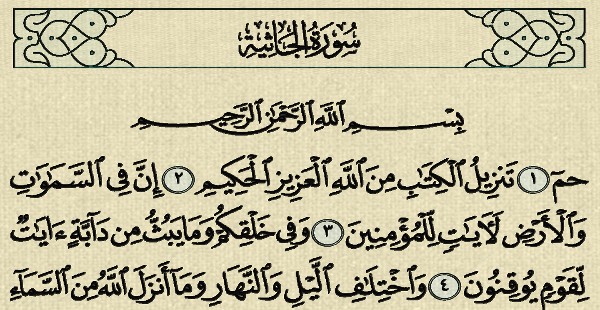 سُورَةُ الْجَاثِيَةِ
بِسْمِ ٱللَّهِ ٱلرَّحْمَٰنِ ٱلرَّحِيمِ
حمٓ ١ تَنزِيلُ ٱلْكِتَٰبِ مِنَ ٱللَّهِ ٱلْعَزِيزِ ٱلْحَكِيمِ ٢ إِنَّ فِى ٱلسَّمَٰوَٰتِ
وَٱلْأَرْضِ لَءَايَٰتٍ لِّلْمُؤْمِنِينَ ٣ وَفِى خَلْقِكُمْ وَمَا يَبُثُّ مِن دَآبَّةٍ ءَايَٰتٌ
لِّقَوْمٍ يُوقِنُونَ ٤ وَٱخْتِلَٰفِ ٱلَّيْلِ وَٱلنَّهَارِ وَمَآ أَنزَلَ ٱللَّهُ مِنَ ٱلسَّمَآءِ